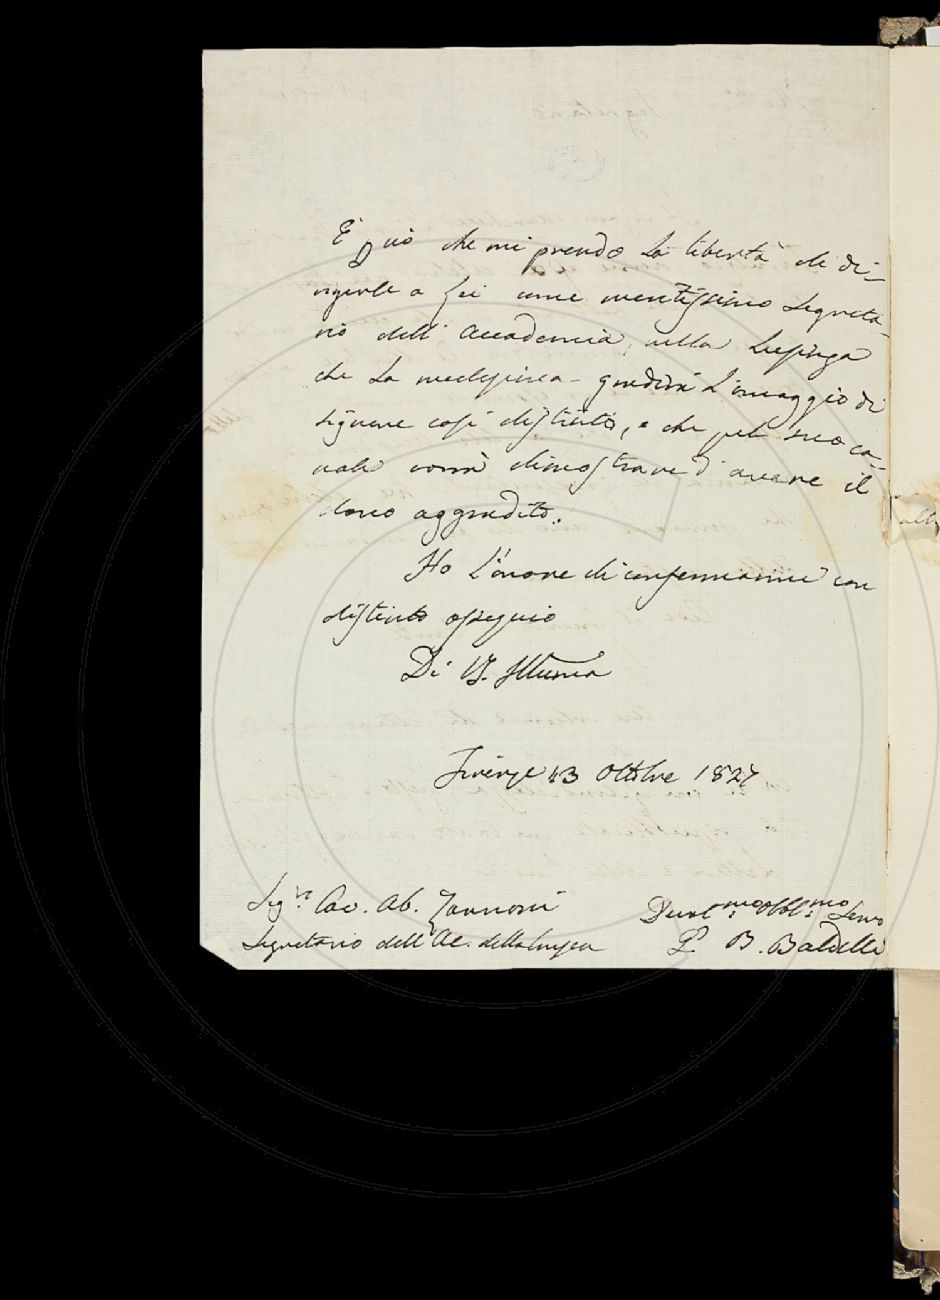 È perciò che mi prendo la libertà di di-
rigerle a Lei come meritissimo Segreta-
rio dell'Accademia, nella lusinga
che la medesima gradirà l'omaggio di
signore così distinto, e che pel suo ca-
nale vorrà dimostrare d'avere il
dono aggradito.
Ho l'onore di confermarmi con
distinto ossequio
Di V. S. Illusma
Firenze 13 Ottbre 1827
Sigre Cav. Ab. Zannoni
Segretario dell'Ac. della Crusca
Devotmo Obblmo Servo
B. Baldelli